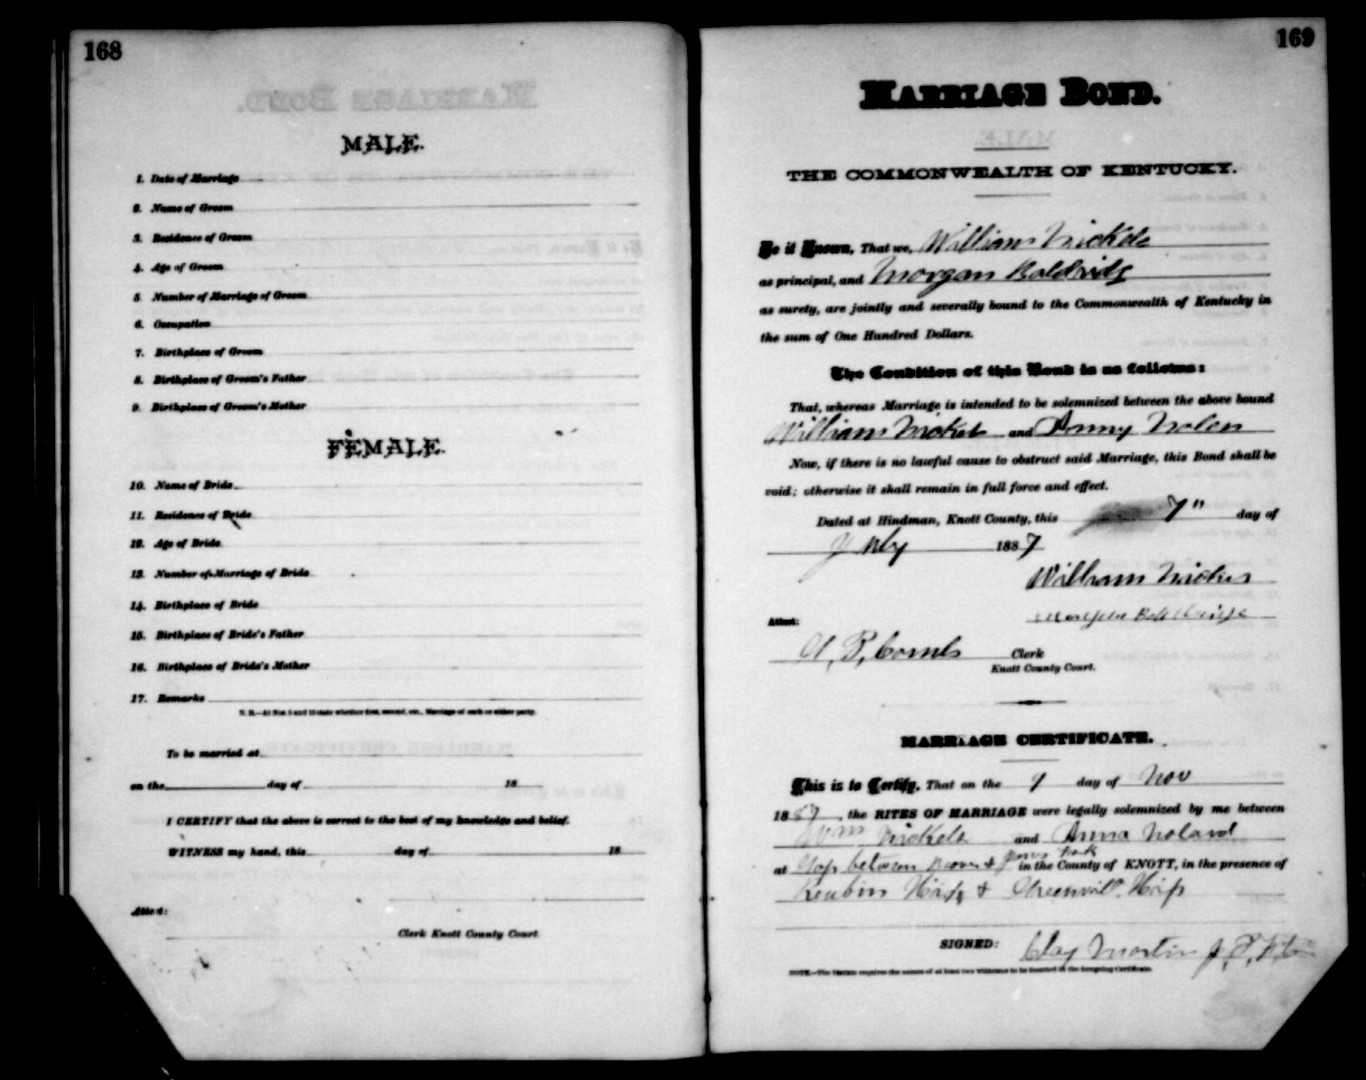 168
MALE.
1. Date of Marriage
2. Name of Groom
3. Residence of Groom
4. Age of Groom
5. Number of Marriage of Groom
6. Occupation
7. Birthplace of Groom
8. Birthplace of Groom's Father
9. Birthplace of Groom's Mother
FEMALE.
10. Name of Bride
11. Residence of Bride
12. Age of Bride
13. Number of Marriage of Bride
14. Birthplace of Bride
15. Birthplace of Bride's Father
16. Birthplace of Bride's Mother
17. Remarks
N. B.—At Nos. 5 and 13 state whether first, second, etc., Marriage of each or either party.
To be married at
on the day of 18
I CERTIFY that the above is correct to the best of my knowledge and belief.
WITNESS my hand, this day of 18
Attest:
Clerk Knott County Court.
169
MARRIAGE BOND.
THE COMMONWEALTH OF KENTUCKY.
Be it Known, That we, William Nickels
as principal, and Morgan Baldridg
as surety, are jointly and severally bound to the Commonwealth of Kentucky in
the sum of One Hundred Dollars.
The Condition of this Bond is as follows:
That, whereas Marriage is intended to be solemnized between the above bound
William Nickels and Anny Nolen
Now, if there is no lawful cause to obstruct said Marriage, this Bond shall be
void; otherwise it shall remain in full force and effect.
Dated at Hindman, Knott County, this 7" day of
July 1887
William Nickels
Attest:
Combs Clerk
Knott County Court.
MARRIAGE CERTIFICATE.
This is to Certify, That on the 9 day of Nov
1887, the RITES OF MARRIAGE were legally solemnized by me between
Wm Nickels and Anna Noland
at Gap between Beaver & Jones fork in the County of KNOTT, in the presence of
Reubin & Greenvill
SIGNED: Clay Martin J. P. K. C.
NOTE.—The Statute requires the names of at least two witnesses to be inserted in the foregoing Certificate.